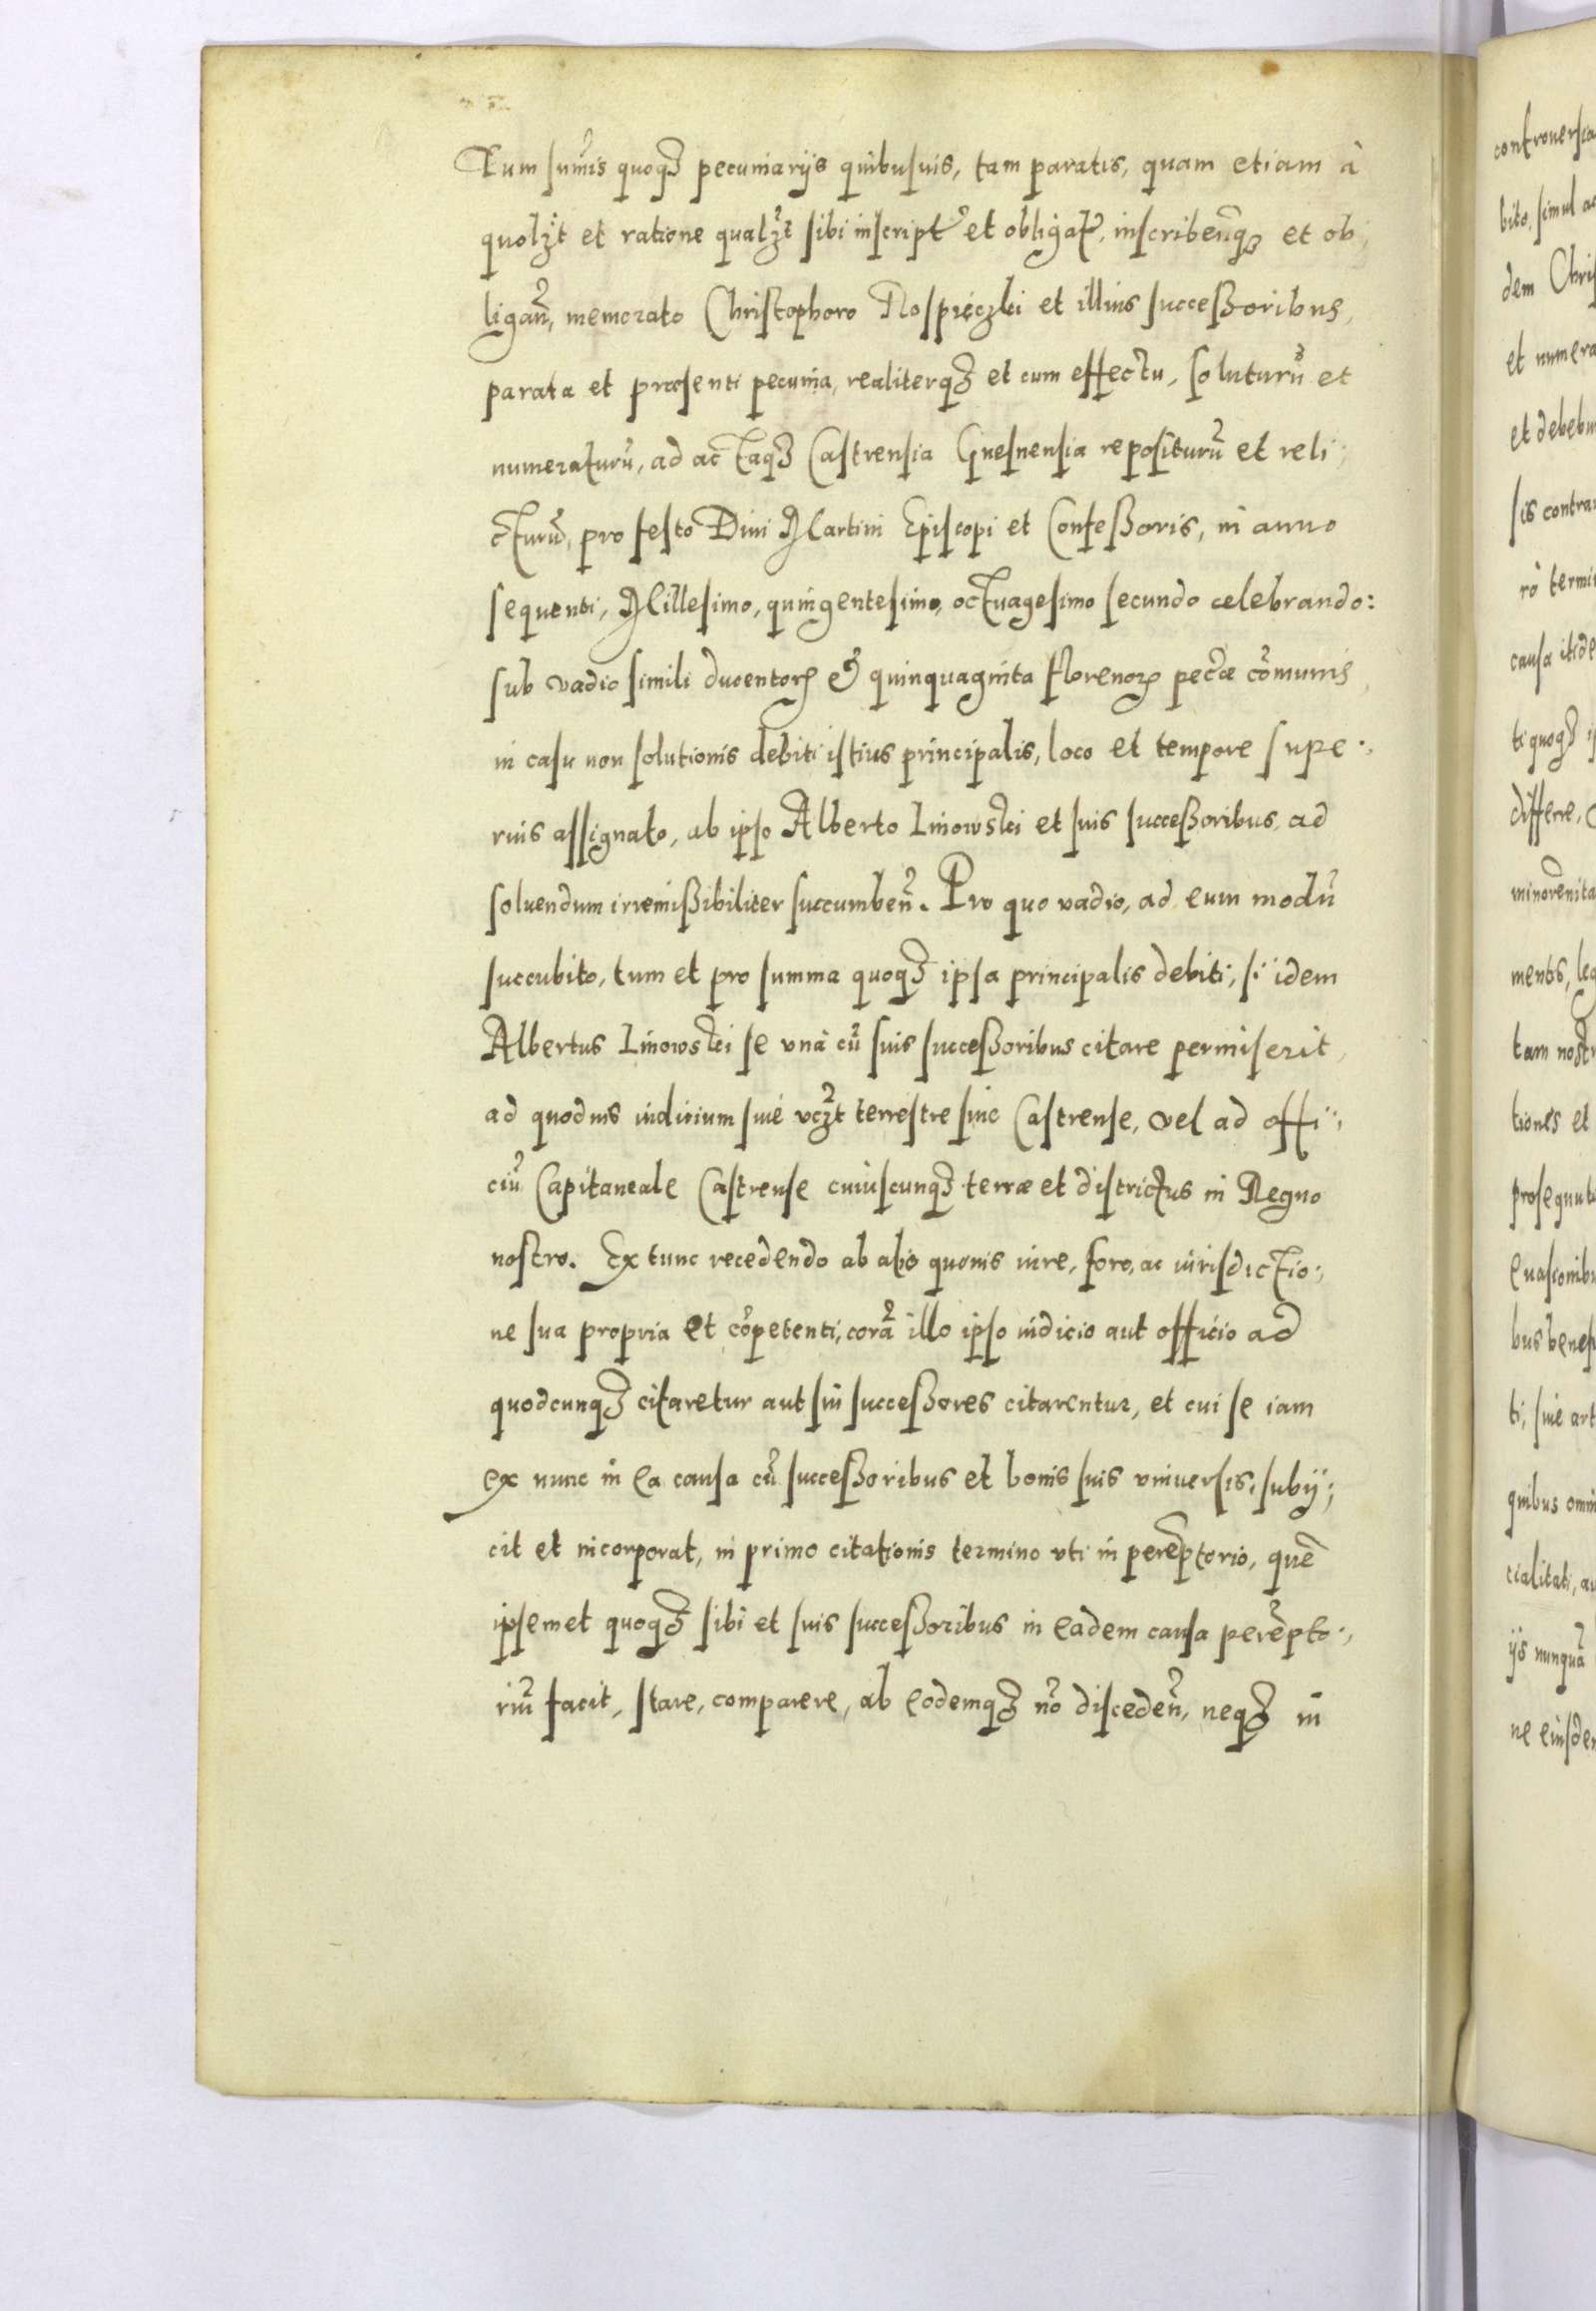 Cum sum̃is quoqȝ pecuniarijs quibusuis, tam paratis, quam etiam à
quolȝt et ratione qualȝt sibi inscript̃ et obligat̃, inscribeñqȝ et ob,
ligañ, memorato Christophoro Rospieczki et illius successoribus,
parata et præsenti pecunia, realiterqȝ et cum effectu, soluturũ et
numeraturũ, ad actaqȝ Castrensia Gnesnensia repositurũ et reli,
cturũ, pro festo Diui Martini Episcopi et Confessoris, in anno
sequenti, Millesimo, quingentesimo, octuagesimo secundo celebrando:
sub vadio simili ducentorꝫ & quinquaginta florenorꝫ pecũæ cõmunis,
in casu non solutionis debiti istius principalis, loco et tempore supe:,
rius assignato, ab ipso Alberto Linowski et suis successoribus, ad
soluendum irremissibiliter succumbeñ. Pro quo vadio, ad eum modũ
succubito, tum et pro summa quoqȝ ipsa principalis debiti, si idem
Albertus Linowski se vnà cũ suis successoribus citare permiserit,
ad quoduis iudicium siue vcȝt terrestre siue Castrense, vel ad offi,,
ciũ Capitaneale Castrense cuiuscunqȝ terræ et districtus in Regno
nostro. Ex tunc recedendo ab alio quouis iure, foro, ac iurisdictio:,
ne sua propria et cõpetenti, corã illo ipso iudicio aut officio ad
quodcunqȝ citaretur aut sui successores citarentur, et cui se iam
ex nunc in ea causa cũ successoribus et bonis suis vniuersis, subij,,
cit et incorporat, in primo citationis termino vti in perẽptorio, quẽ
ipsemet quoqȝ sibi et suis successoribus in eadem causa perẽpto:,
riũ facit, stare, comparere, ab eodemqȝ nõ discedeñ, neqȝ in
controuersia
bito, simul ac
dem Chris
et numera
et debebu
sis contra
rò termi
causa itide
ti quoqȝ
differre,
minorẽnita
mentis, leg
tam nostr
tiones et
prosequuti
euasionibu
bus benefi
ti, siue art
quibus omni
cialitati, au
ijs nunquã
ne eiusdem